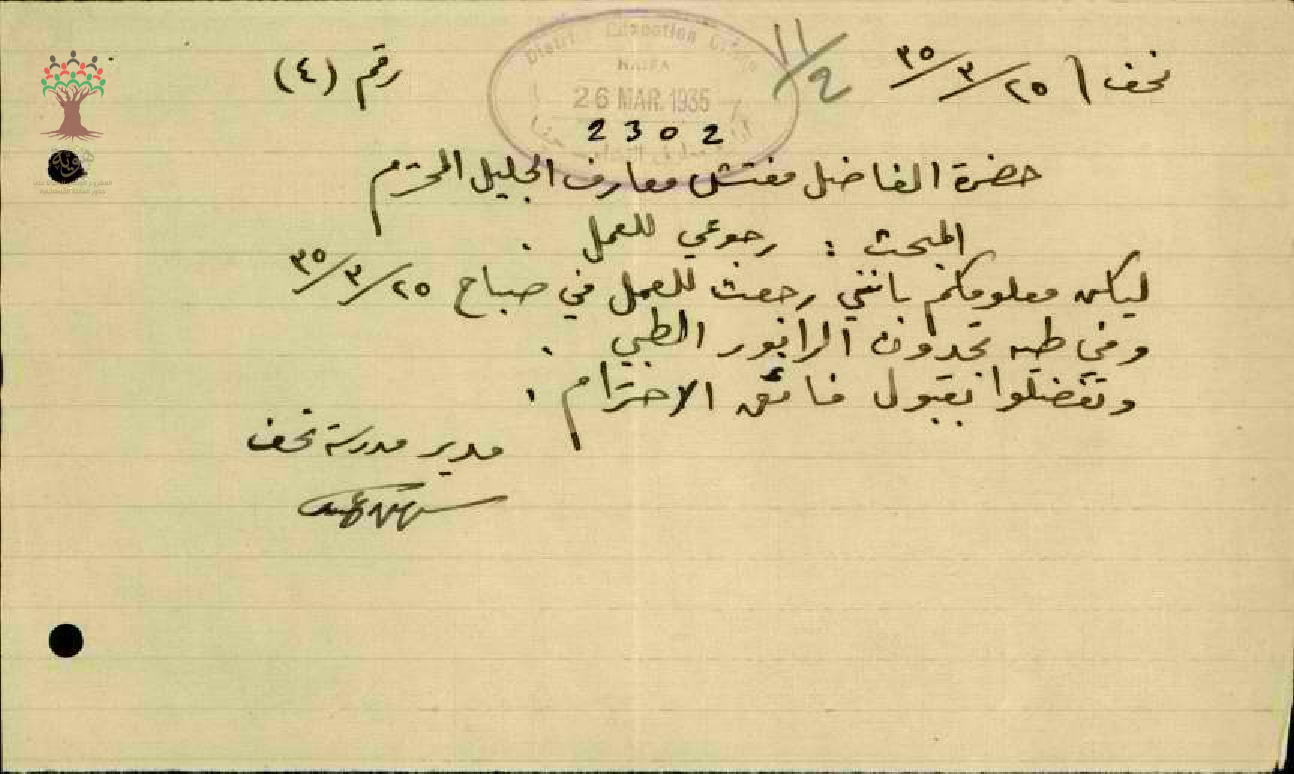 نحف ٢٥/٣/٣٥
رقم (٤)
11/2
District Education Office
HAIFA
26 MAR. 1935
2302
حضرة الفاضل مفتش معارف الجليل المحترم
المبحث : رجوعي للعمل .
ليكن معلومكم بانني رجعت للعمل في صباح ٢٥/٣/٣٥
وفي طيه تجدون الرابور الطبي .
وتفضلوا بقبول فائق الاحترام .
مدير مدرسة نحف